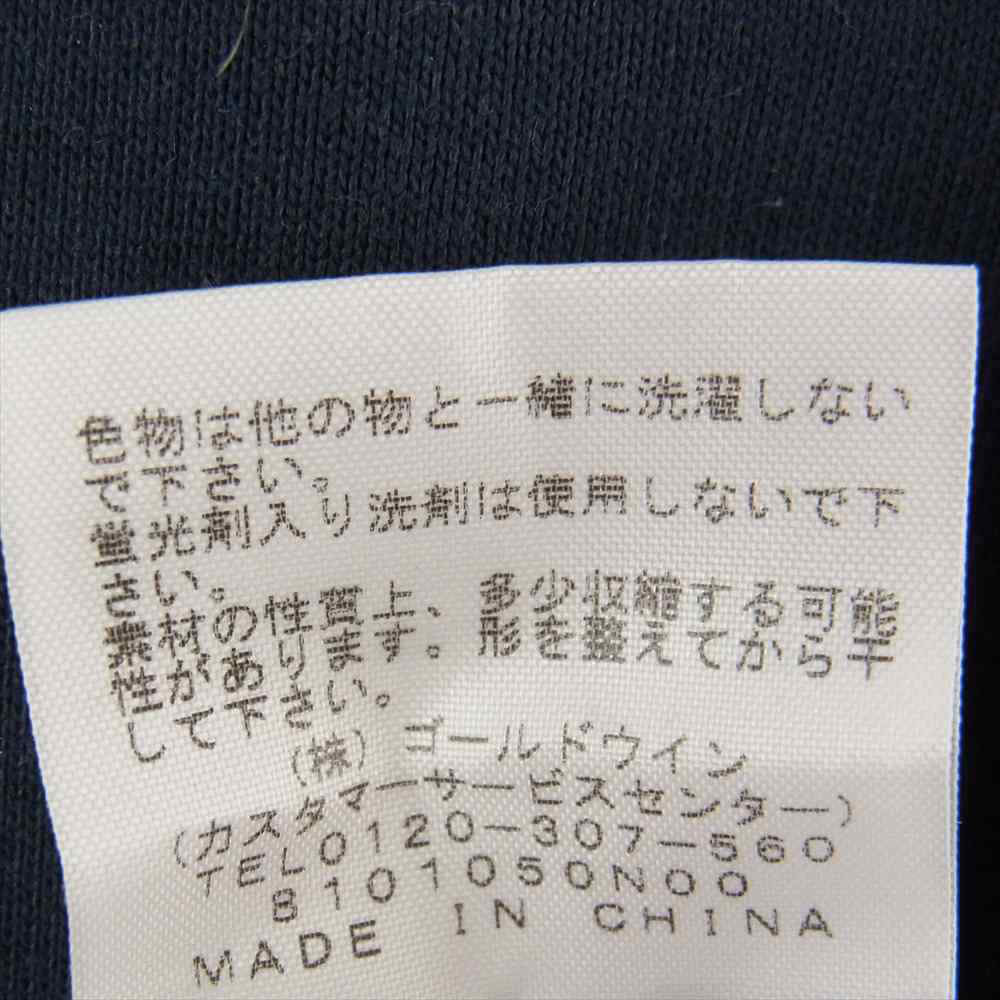 色物は他の物と一緒に洗濯しない
で下さい。
蛍光剤入り洗剤は使用しないで下
さい。
素材の性質上、多少収縮する可能
性があります。形を整えてから干
して下さい。
(株)ゴールドウイン
(カスタマーサービスセンター)
TEL0120-307-560
B101050N00
MADE IN CHINA